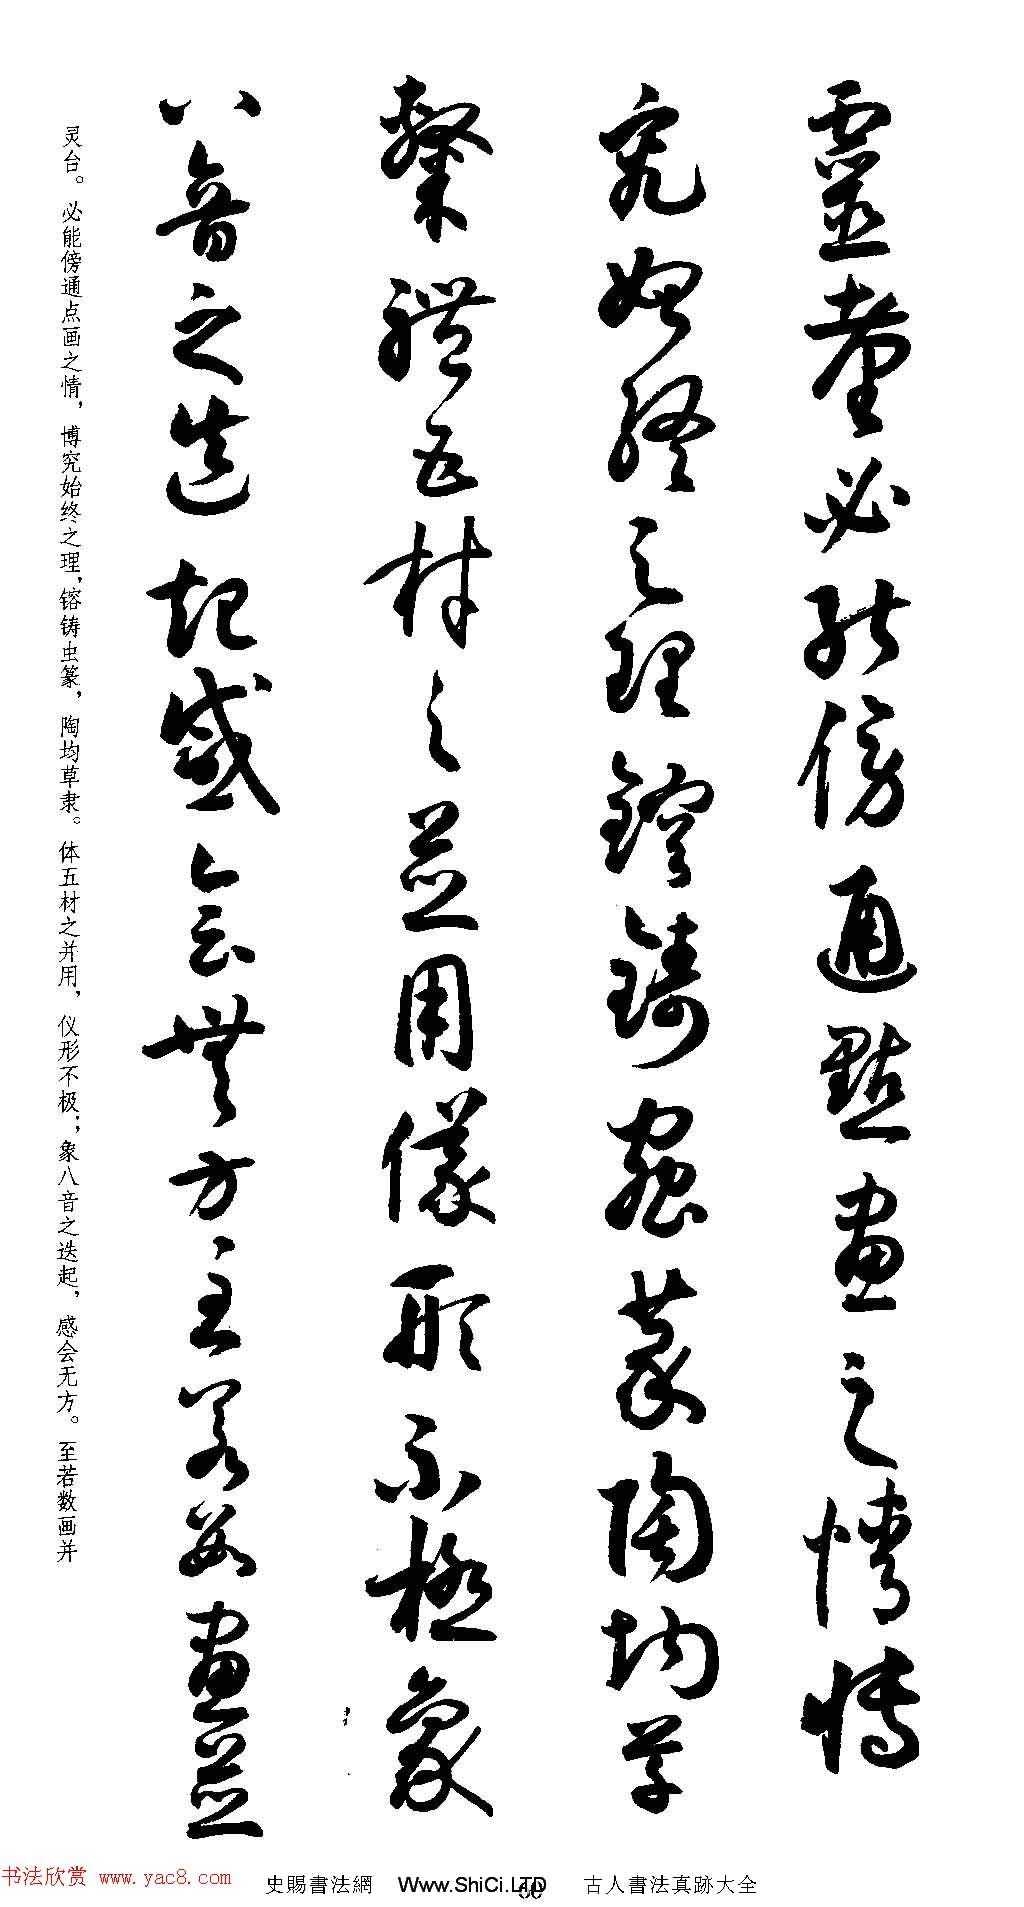 靈臺必能傍通點畫之情博
究始終之理鎔鑄蟲篆陶均草
隸體五材之並用儀形不極象
八音之迭起感會無方至若數畫並
灵台。必能傍通点画之情，博究始终之理，镕铸虫篆，陶均草隶。体五材之并用，仪形不极；象八音之迭起，感会无方。至若数画并
书法欣赏 www.yac8.com
史賜書法網 Www.ShiCi.LTD 古人書法真跡大全